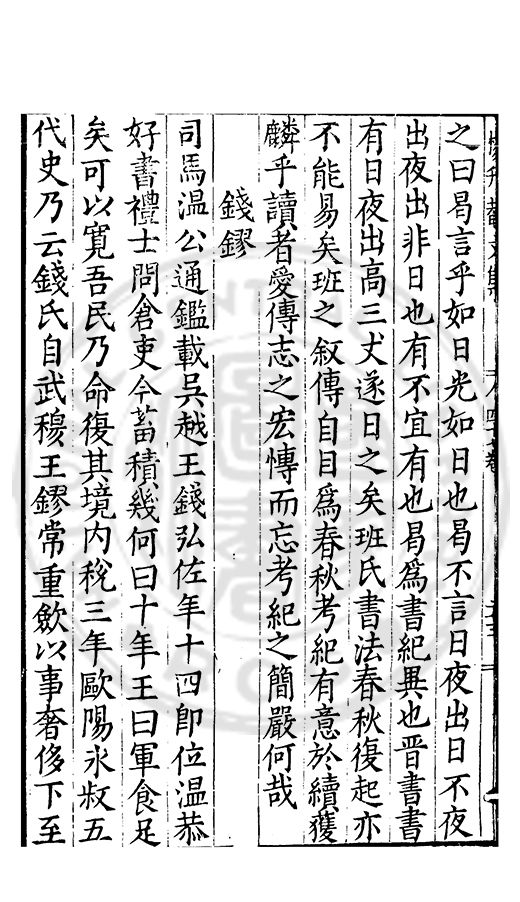 楊升菴文集
之曰曷言乎如日光如日也曷不言日夜出日不夜
出夜出非日也有不宜有也曷爲書紀異也晋書書
有日夜出高三丈遂日之矣班氏書法春秋復起亦
不能易矣班之叙傳自目爲春秋考紀有意於續獲
麟乎讀者愛傳志之宏愽而忘考紀之簡嚴何哉
錢鏐
司馬溫公通鑑載吳越王錢弘佐年十四即位溫恭
好書禮士問倉吏今蓄積幾何曰十年王曰軍食足
矣可以寬吾民乃命復其境内稅三年歐陽永叔五
代史乃云錢氏自武穆王鏐常重歛以事奢侈下至